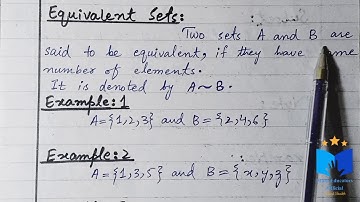 Equivalent Sets:
Two sets A and B are
said to be equivalent, if they have same
number of elements.
It is denoted by A~B.
Example:1
A={1,2,3} and B={2,4,6}
Example:2
A={1,3,5} and B={x,y,z}